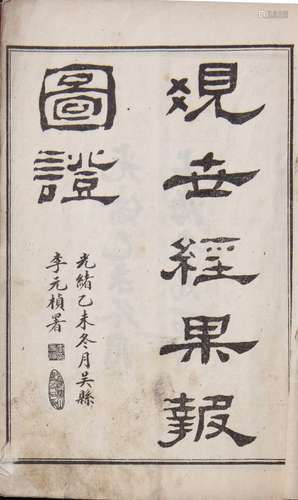 現世經果報
圖證
光緒乙未冬月吳縣
李元楨署